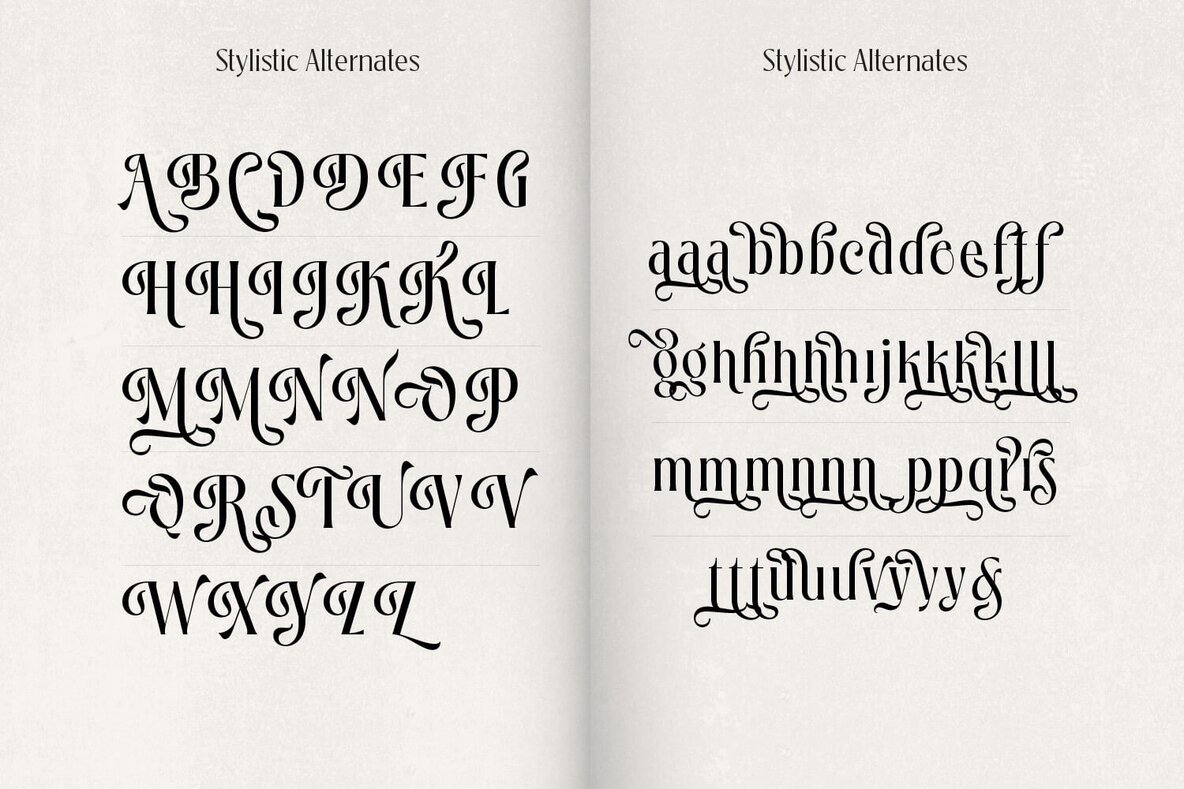 Stylistic Alternates
A B C D D E F G
H H I J K K L
M M N N O P
Q R S T U V V
W X Y Z Z
Stylistic Alternates
a a a b b b c d d o e f f f
g g h h h h h i j k k k k l l l
m m m n n n p p q r r s
t t t u u u v y v y &